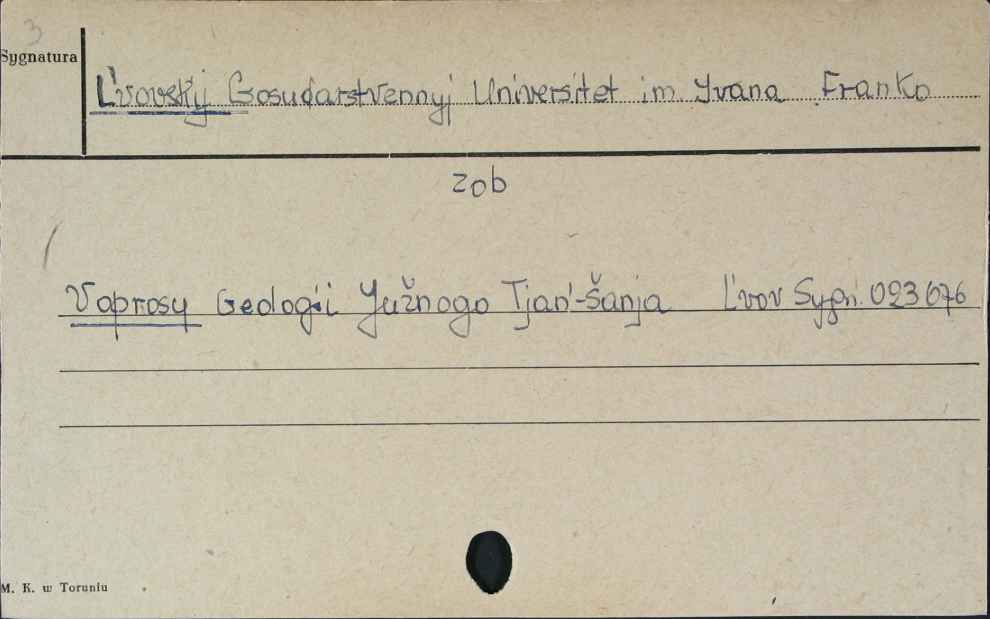 3
Sygnatura
L'vovskij Gosudarstvennyj Universitet im. Ivana Franko
zob
Voprosy Geologii Južnogo Tjan'-šanja L'vov Sygn. 023 676
M. K. w Toruniu